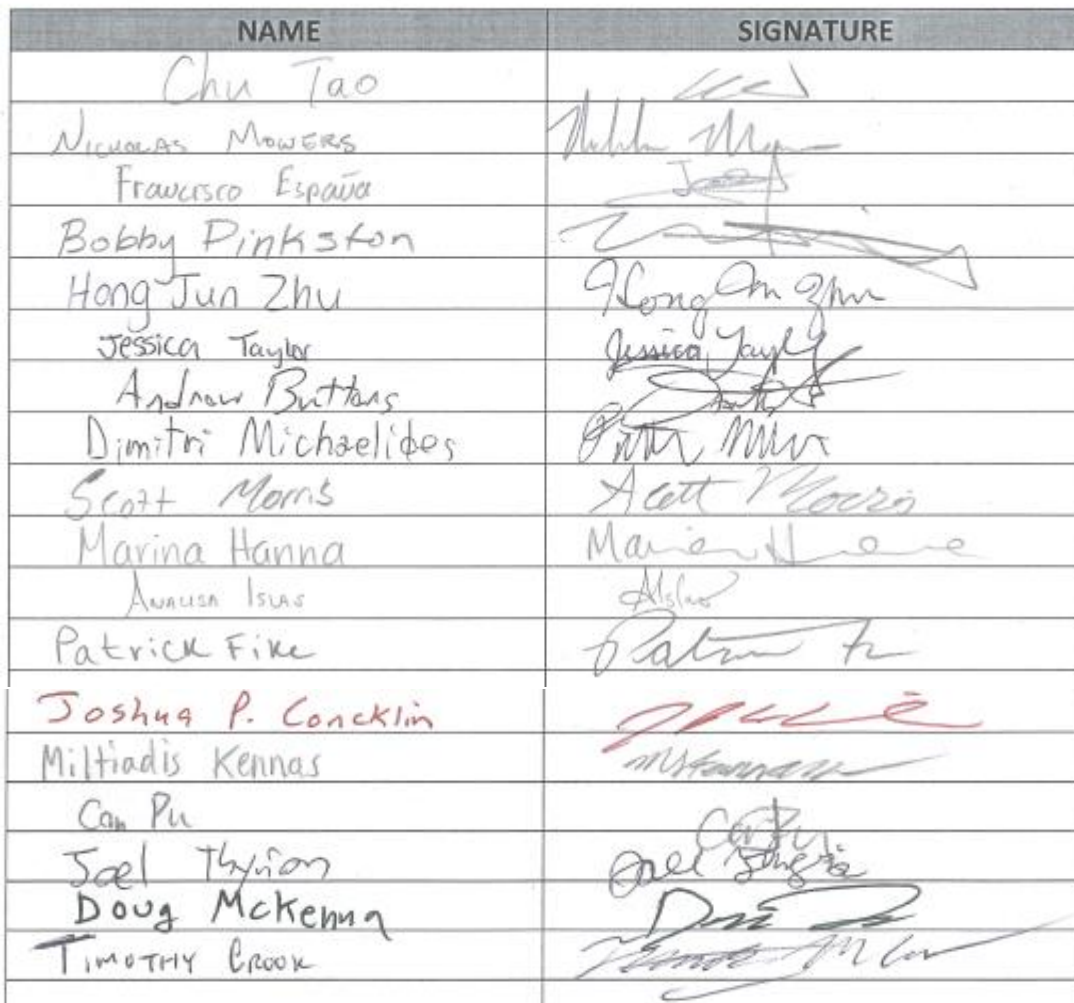 NAME SIGNATURE
Chu Tao
Nicholas Mowers
Francisco España
Bobby Pinkston
Hong Jun Zhu Hong Jun Zhu
Jessica Taylor Jessica Taylor
Andrew Buttars
Dimitri Michaelides
Scott Morris Scott Morris
Marina Hanna
Analisa Islas AIslas
Patrick Fike
Joshua P. Concklin
Miltiadis Kennas
Can Pu Can Pu
Joel Thyrion Joel
Doug McKenna
Timothy Crook